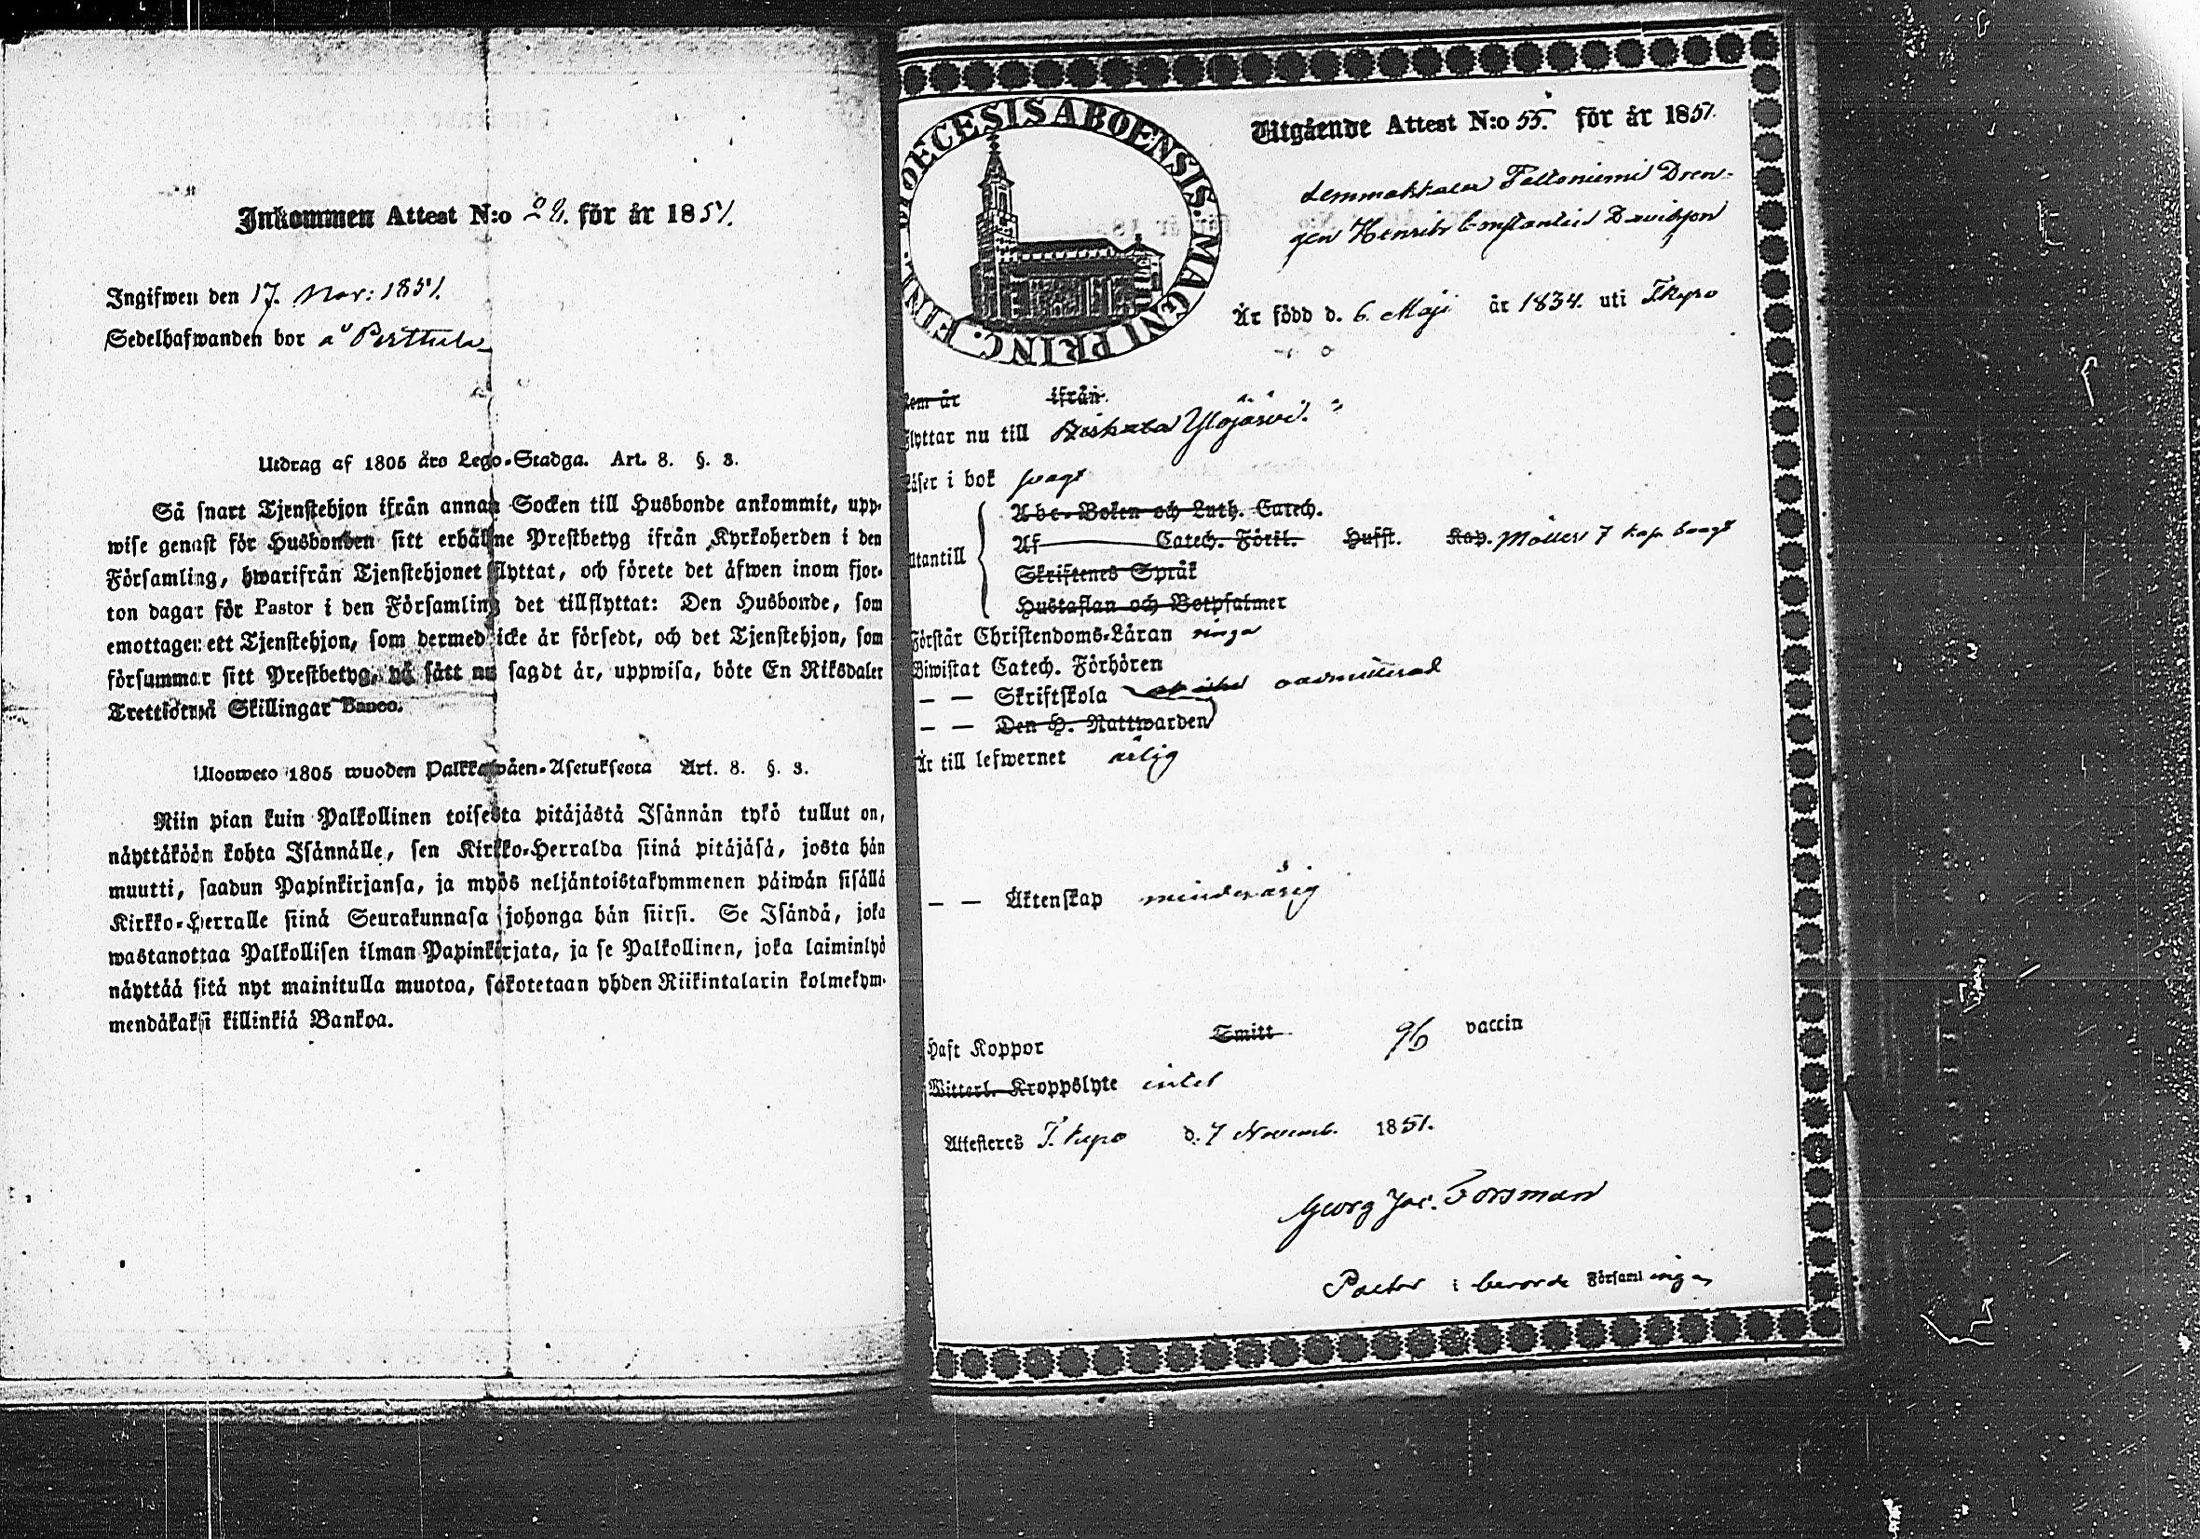 Inkommen Attest N:o 29. för år 1851.
Ingifwen den 17. Nov: 1851.
Sedelhafwanden bor å Perttula
Utdrag af 1805 års Lego-Stadga. Art. 8. §. 3.
Så snart Tjenstehjon ifrån annan Socken till Husbonde ankommit, upp-
wise genast för Husbonden sitt erhållne Prestbetyg ifrån Kyrkoherden i den
Församling, hwarifrån Tjenstehjonet flyttat, och förete det äfwen inom fjor-
ton dagar för Pastor i den Församling det tillflyttat: Den Husbonde, som
emottager ett Tjenstehjon, som dermed icke är försedt, och det Tjenstehjon, som
försummar sitt Prestbetyg, på sätt nu sagdt är, uppwisa, böte En Riksdaler
Trettiotwå Skillingar Banco.
Ulosweto 1805 wuoden Palkkawäen-Asetuksesta Art. 8. §. 3.
Niin pian kuin Palkollinen toisesta pitäjästä Isännän tykö tullut on,
näyttäköön kohta Isännälle, sen Kirkko-Herralda siinä pitäjäsä, josta hän
muutti, saadun Papinkirjansa, ja myös neljäntoistakymmenen päiwän sisällä
Kirkko-Herralle siinä Seurakunnasa johonga hän siirsi. Se Isändä, joka
wastanottaa Palkollisen ilman Papinkirjata, ja se Palkollinen, joka laiminlyö
näyttää sitä nyt mainitulla muotoa, sakotetaan yhden Riikintalarin kolmekym-
mendäkaksi killinkiä Bankoa.
DIOECESIS ABOENSIS. MAGNI PRINC. FINL.
Utgående Attest N:o 55. för år 1851.
Lemmakkala Taltoniemi Dren-
gen Henrik Constantin Davidsson
Är född d. 6. Maji år 1834. uti Tkyro
Kom år ifrån
Flyttar nu till Ylöjärvi.
Läser i bok svagt
Abc-Boken och Luth. Catech.
Af Catech. Förkl. Husst. Kap. Möllers 7 kap. svagt
Utantill
Skriftenes Språk
Hustaflan och Botpsalmer
Förstår Christendoms-Läran ringa
Biwistat Catech. Förhören
— — Skriftskola oadmitterad
— — Den H. Nattwarden
Är till lefwernet ärlig
— — Äktenskap minderårig
Haft Koppor Smitt vaccin
Witterl. Kroppslyte intet
Attesteres T.kyro d. 7 Novemb. 1851.
Georg Jac. Forsman
Pastor i berörde Församlingen